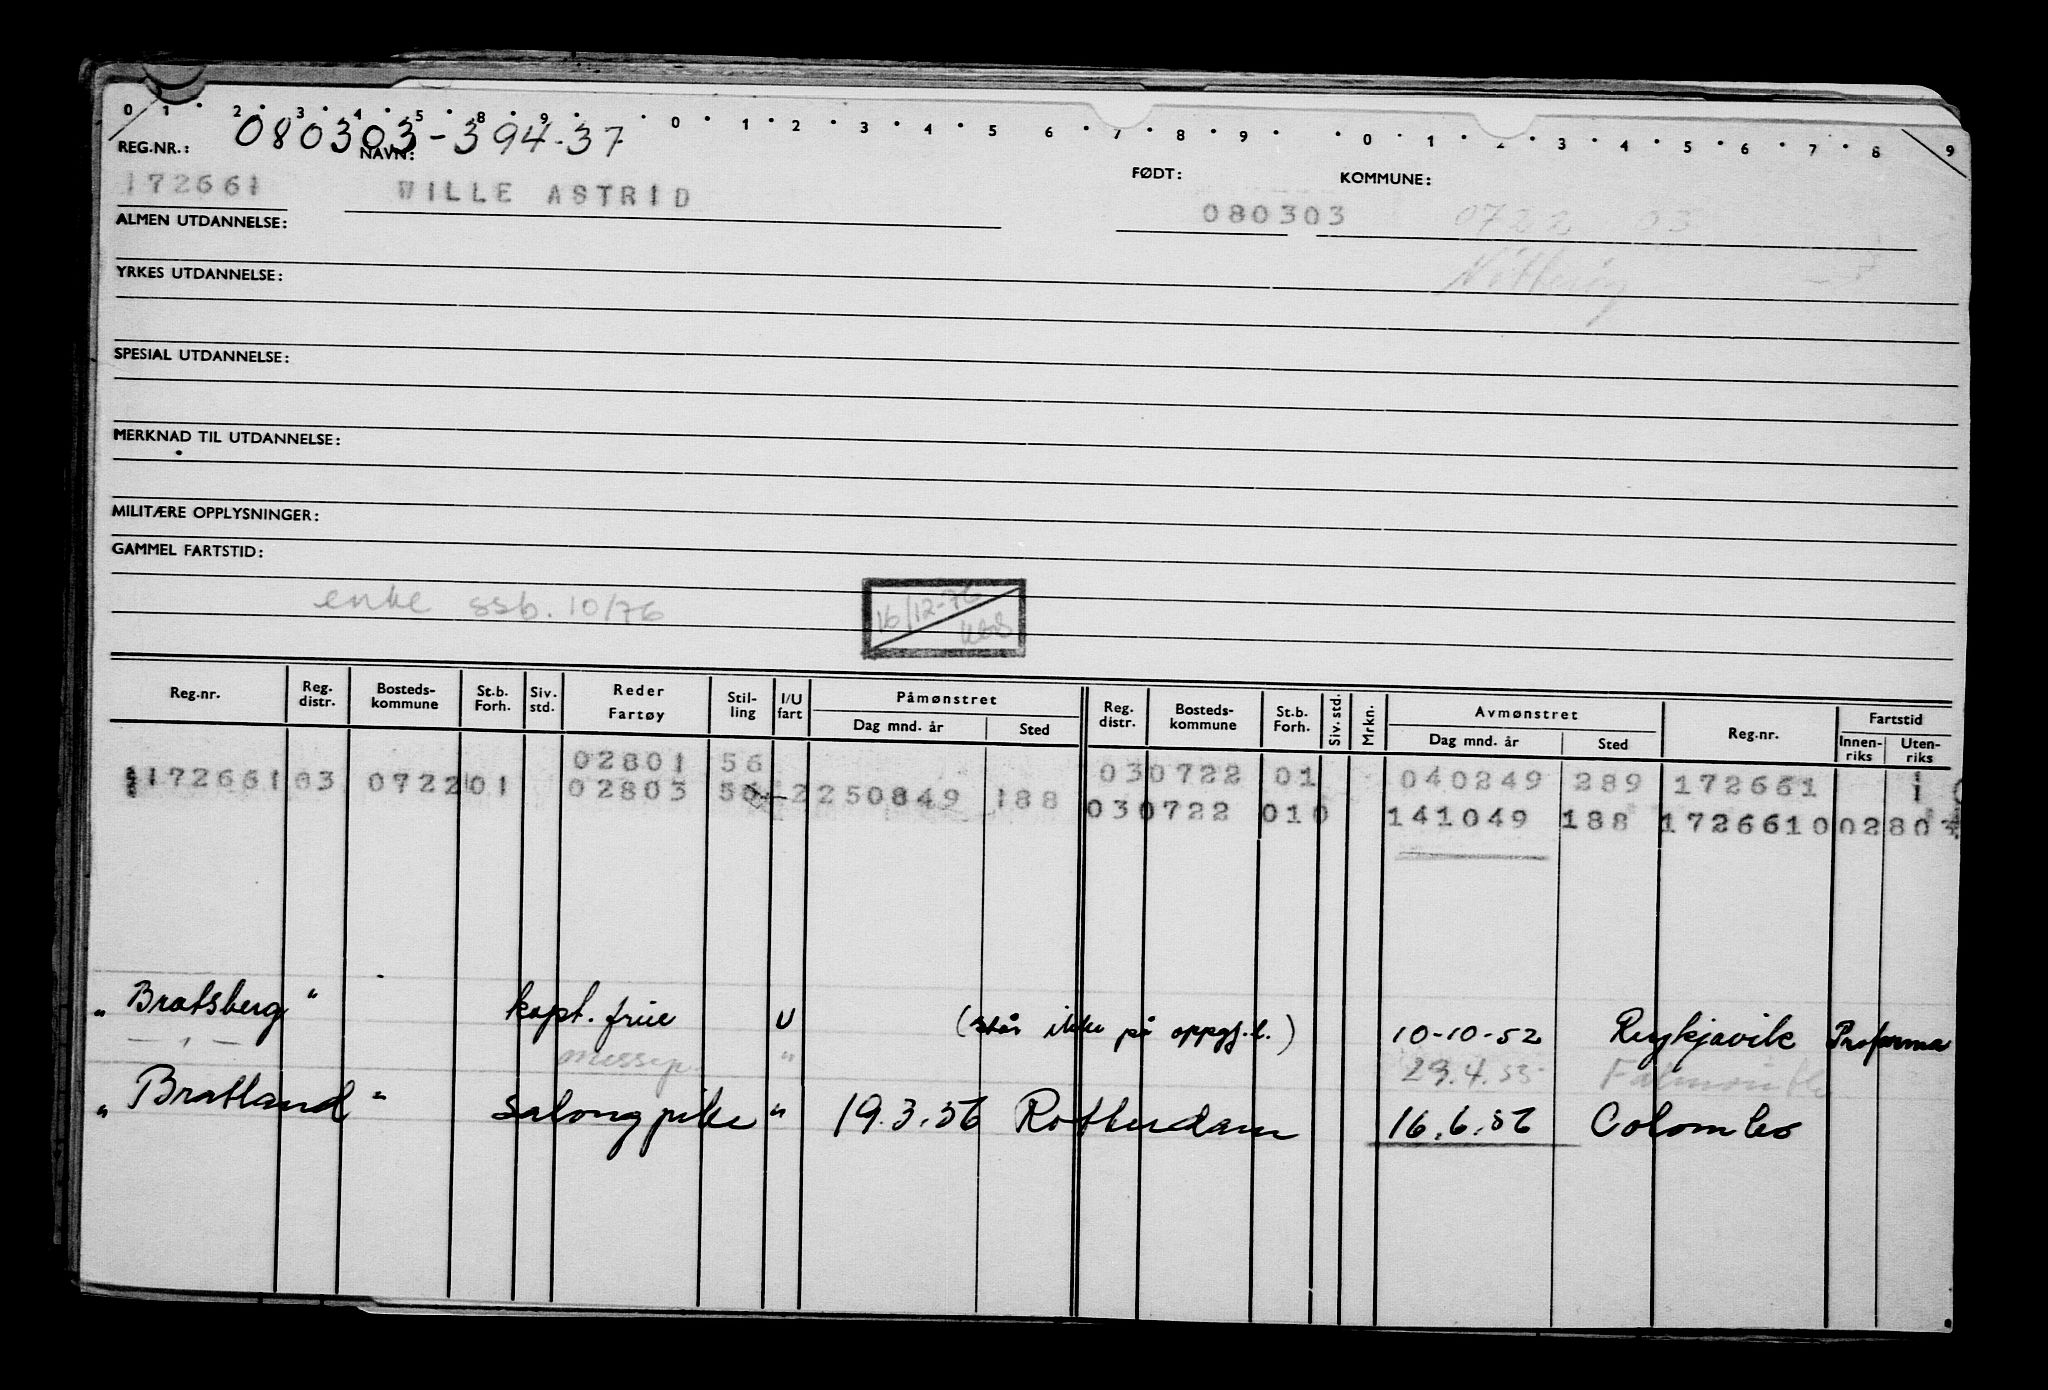 0 1 2 3 4 5 8 9 0 1 2 3 4 5 6 7 8 9 0 1 2 3 4 5 6 7 8 9
080303-394-37
REG.NR.: NAVN: FØDT: KOMMUNE:
172661 WILLE ASTRID 080303 0722 03
ALMEN UTDANNELSE:
Nøtterøy
YRKES UTDANNELSE:
SPESIAL UTDANNELSE:
MERKNAD TIL UTDANNELSE:
MILITÆRE OPPLYSNINGER:
GAMMEL FARTSTID:
enke ssb. 10/76 16/12-76
Reg.nr. Reg. distr. Bosteds- kommune St.b. Forh. Siv. std. Reder Fartøy Stil- ling I/U fart Påmønstret Dag mnd. år Sted Reg. distr. Bosteds- kommune St.b. Forh. Siv. std. Mrkn. Avmønstret Dag mnd. år Sted Reg.nr. Fartstid Innen- riks Uten- riks
02801 56 030722 01 040249 289 172661 1
172661 03 0722 01 02803 56 2 250849 188 030722 010 141049 188 1726610 02803
"Bratsberg" kapt. frue U (står ikke på oppgj.l.) 10-10-52 Reykjavik Proforma
- " - messep. " 29.4.55 Falmouth
"Bratland" salongpike " 19.3.56 Rotterdam 16.6.56 Colombo